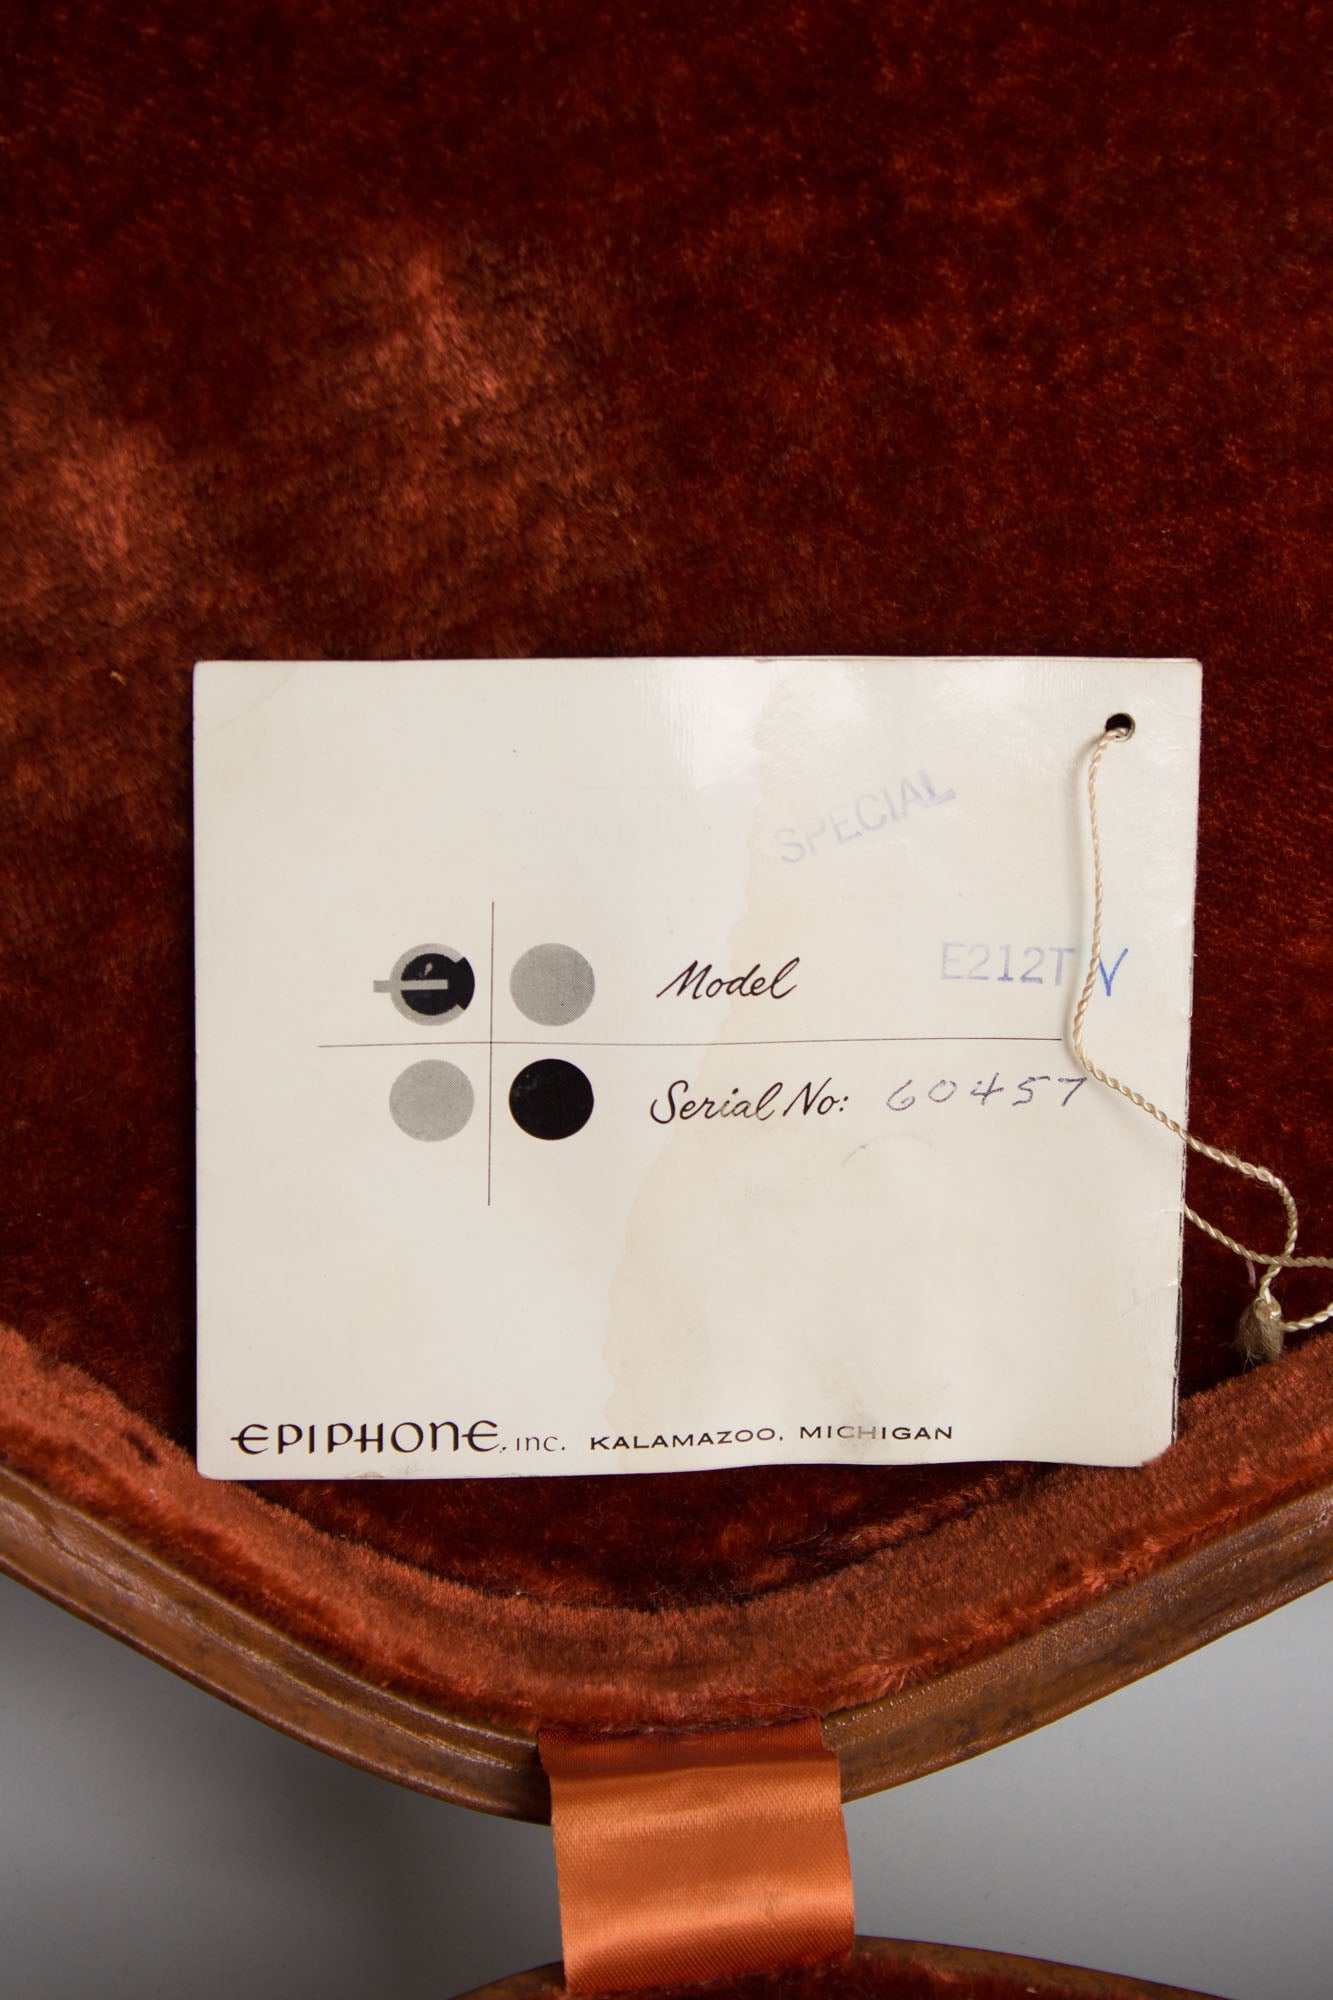 SPECIAL
Model E212T V
Serial No: 60457
EPIPHONE, INC. KALAMAZOO, MICHIGAN